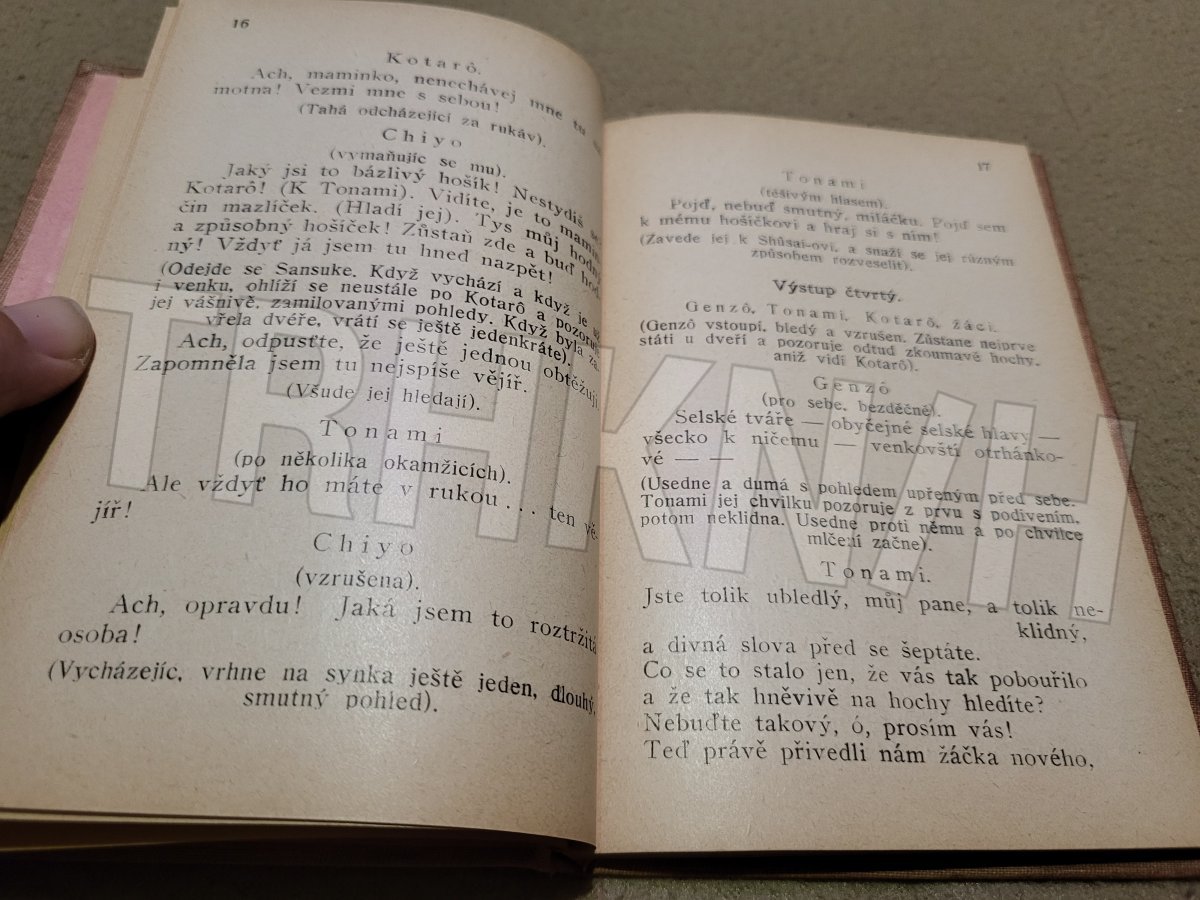 16
Kotarô.
Ach, maminko, nenechávej mne tu
motna! Vezmi mne s sebou!
(Tahá odcházející za rukáv).
Chiyo
(vymaňujíc se mu).
Jaký jsi to bázlivý hošík! Nestydíš se,
Kotarô! (K Tonami). Vidíte, je to mamin
čin mazlíček. (Hladí jej). Tys můj hodný
a způsobný hošíček! Zůstaň zde a buď hod
ný! Vždyť já jsem tu hned nazpět!
(Odejde se Sansuke. Když vychází a když je už
i venku, ohlíží se neustále po Kotarô a pozoruje
jej vášnivě, zamilovanými pohledy. Když byla za-
vřela dvéře, vrátí se ještě jedenkráte).
Ach, odpusťte, že ještě jednou obtěžuji.
Zapomněla jsem tu nejspíše vějíř.
(Všude jej hledají).
Tonami
(po několika okamžicích).
Ale vždyť ho máte v rukou... ten vě-
jíř!
Chiyo
(vzrušena).
Ach, opravdu! Jaká jsem to roztržitá
osoba!
(Vycházejíc, vrhne na synka ještě jeden, dlouhý,
smutný pohled).
17
Tonami
(těšivým hlasem).
Pojď, nebuď smutný, miláčku. Pojď sem
k mému hošíčkovi a hraj si s ním!
(Zavede jej k Shûsai-ovi, a snaží se jej různým
způsobem rozveselit).
Výstup čtvrtý.
Genzô, Tonami, Kotarô, žáci.
(Genzô vstoupí, bledý a vzrušen. Zůstane nejprve
státi u dveří a pozoruje odtud zkoumavě hochy,
aniž vidí Kotarô).
Genzô
(pro sebe, bezděčně).
Selské tváře — obyčejné selské hlavy —
všecko k ničemu — venkovští otrhánko-
vé — —
(Usedne a dumá s pohledem upřeným před sebe.
Tonami jej chvilku pozoruje z prvu s podivením,
potom neklidna. Usedne proti němu a po chvilce
mlčení začne).
Tonami.
Jste tolik ubledlý, můj pane, a tolik ne-
klidný,
a divná slova před se šeptáte.
Co se to stalo jen, že vás tak pobouřilo
a že tak hněvivě na hochy hledíte?
Nebuďte takový, ó, prosím vás!
Teď právě přivedli nám žáčka nového,
TRHKNIH